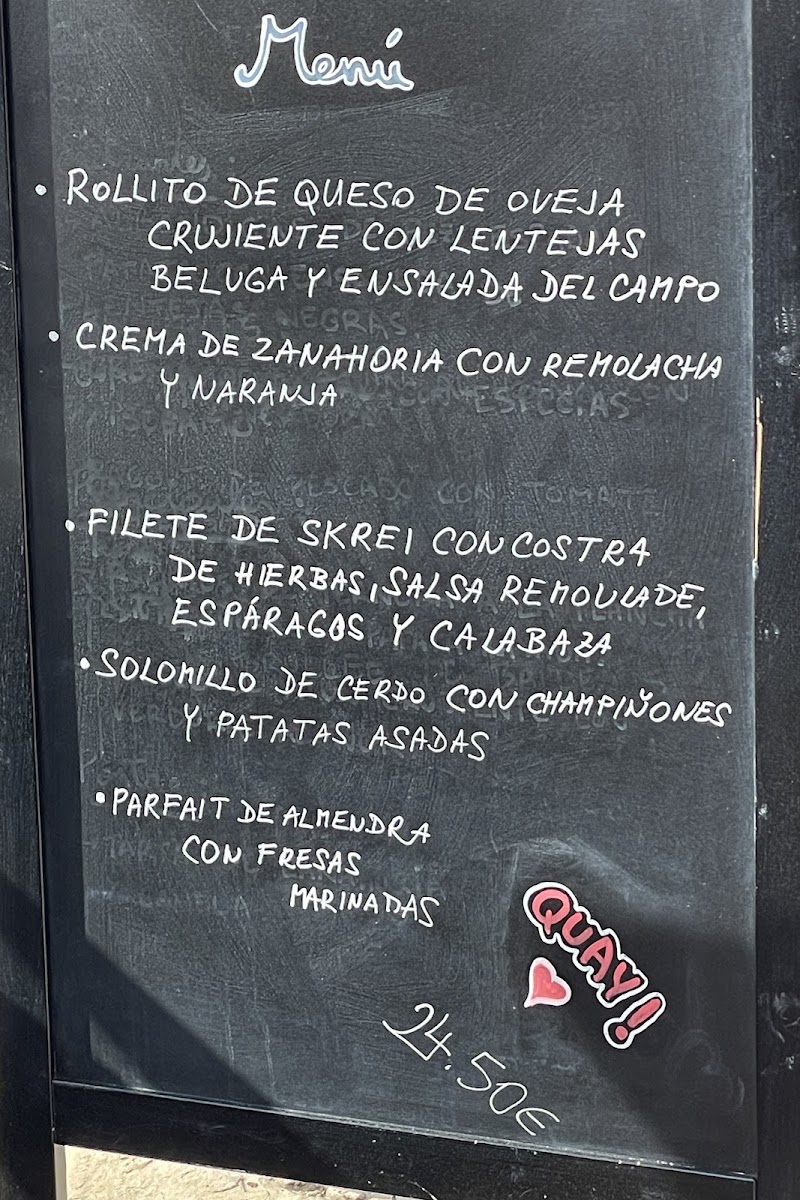 Menú
• ROLLITO DE QUESO DE OVEJA
CRUJIENTE CON LENTEJAS
BELUGA Y ENSALADA DEL CAMPO
• CREMA DE ZANAHORIA CON REMOLACHA
Y NARANJA
• FILETE DE SKREI CON COSTRA
DE HIERBAS, SALSA REMOULADE,
ESPÁRAGOS Y CALABAZA
• SOLOMILLO DE CERDO CON CHAMPIÑONES
Y PATATAS ASADAS
• PARFAIT DE ALMENDRA
CON FRESAS
MARINADAS
QUAY!
24.50€